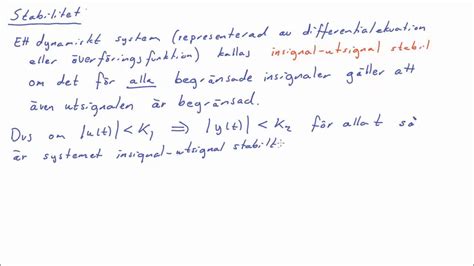 Stabilitet
Ett dynamiskt system (representerad av differentialekvation
eller överföringsfunktion) kallas insignal-utsignal stabil
om det för alla begränsade insignaler gäller att
även utsignalen är begränsad.
Dvs om |u(t)| < K₁ ⇒ |y(t)| < K₂ för alla t så
är systemet insignal-utsignal stabilt